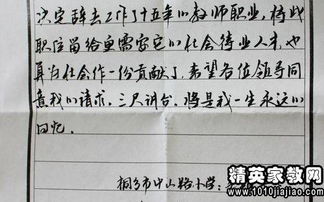 决定辞去工作了十五年的教师职业，将此
职位留给更需要它的社会待业人才，也
算为社会作一份贡献了，希望各位领导同
意我的请求，三尺讲台，将是我一生永远的
回忆。
桐乡市中山路小学：
精英家教网
www.1010jiajiao.com